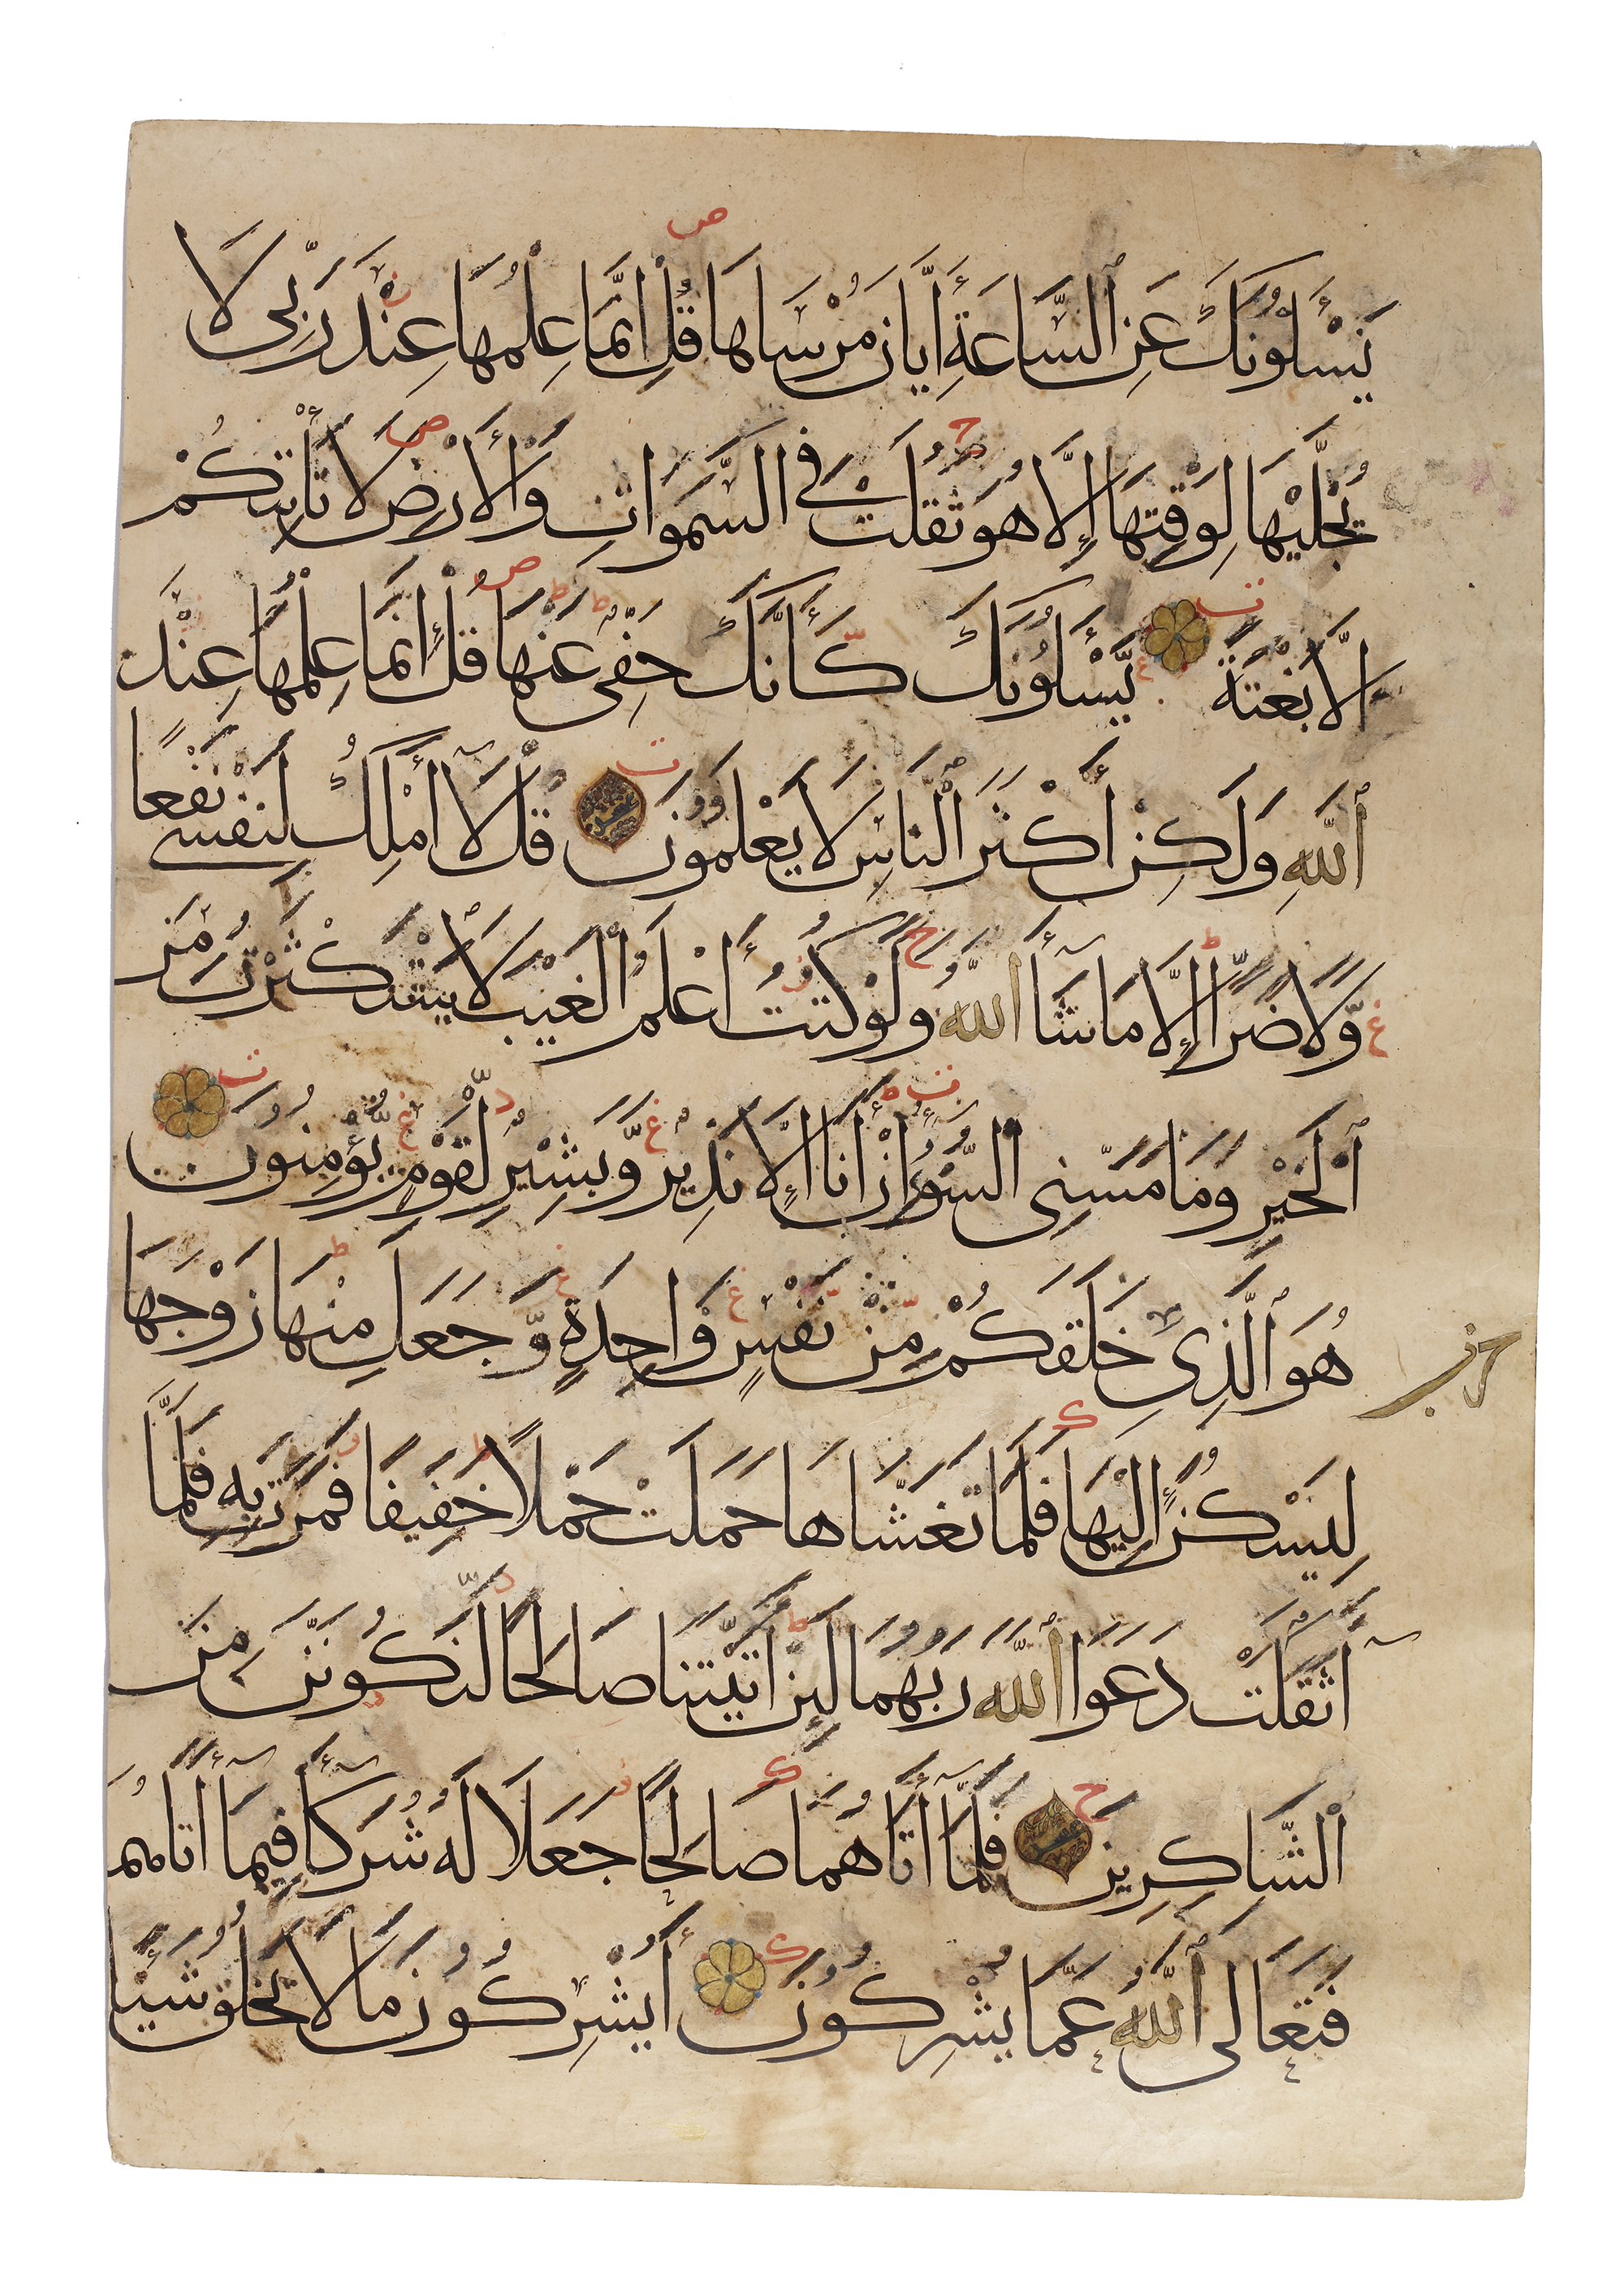 يَسْأَلُونَكَ عَنِ السَّاعَةِ أَيَّانَ مُرْسَاهَا قُلْ إِنَّمَا عِلْمُهَا عِنْدَ رَبِّي لَا
يُجَلِّيْهَا لِوَقْتِهَا إِلَّا هُوَ ثَقُلَتْ فِي السَّمَوَاتِ وَالْأَرْضِ لَا تَأْتِيكُمْ
إِلَّا بَغْتَةً يَسْأَلُونَكَ كَأَنَّكَ حَفِيٌّ عَنْهَا قُلْ إِنَّمَا عِلْمُهَا عِنْدَ
اللَّهِ وَلَكِنَّ أَكْثَرَ النَّاسِ لَا يَعْلَمُونَ قُلْ لَا أَمْلِكُ لِنَفْسِي نَفْعًا
وَلَا ضَرًّا إِلَّا مَا شَاءَ اللَّهُ وَلَوْ كُنْتُ أَعْلَمُ الْغَيْبَ لَاسْتَكْثَرْتُ مِنَ
الْخَيْرِ وَمَا مَسَّنِيَ السُّوءُ إِنْ أَنَا إِلَّا نَذِيرٌ وَبَشِيرٌ لِقَوْمٍ يُؤْمِنُونَ
هُوَ الَّذِي خَلَقَكُمْ مِنْ نَفْسٍ وَاحِدَةٍ وَجَعَلَ مِنْهَا زَوْجَهَا
حزب
لِيَسْكُنَ إِلَيْهَا فَلَمَّا تَغَشَّاهَا حَمَلَتْ حَمْلًا خَفِيفًا فَمَرَّتْ بِهِ فَلَمَّا
أَثْقَلَتْ دَعَوَا اللَّهَ رَبَّهُمَا لَئِنْ آتَيْتَنَا صَالِحًا لَنَكُونَنَّ مِنَ
الشَّاكِرِينَ فَلَمَّا آتَاهُمَا صَالِحًا جَعَلَا لَهُ شُرَكَاءَ فِيمَا آتَاهُمَا
فَتَعَالَى اللَّهُ عَمَّا يُشْرِكُونَ أَيُشْرِكُونَ مَا لَا يَخْلُقُ شَيْئًا